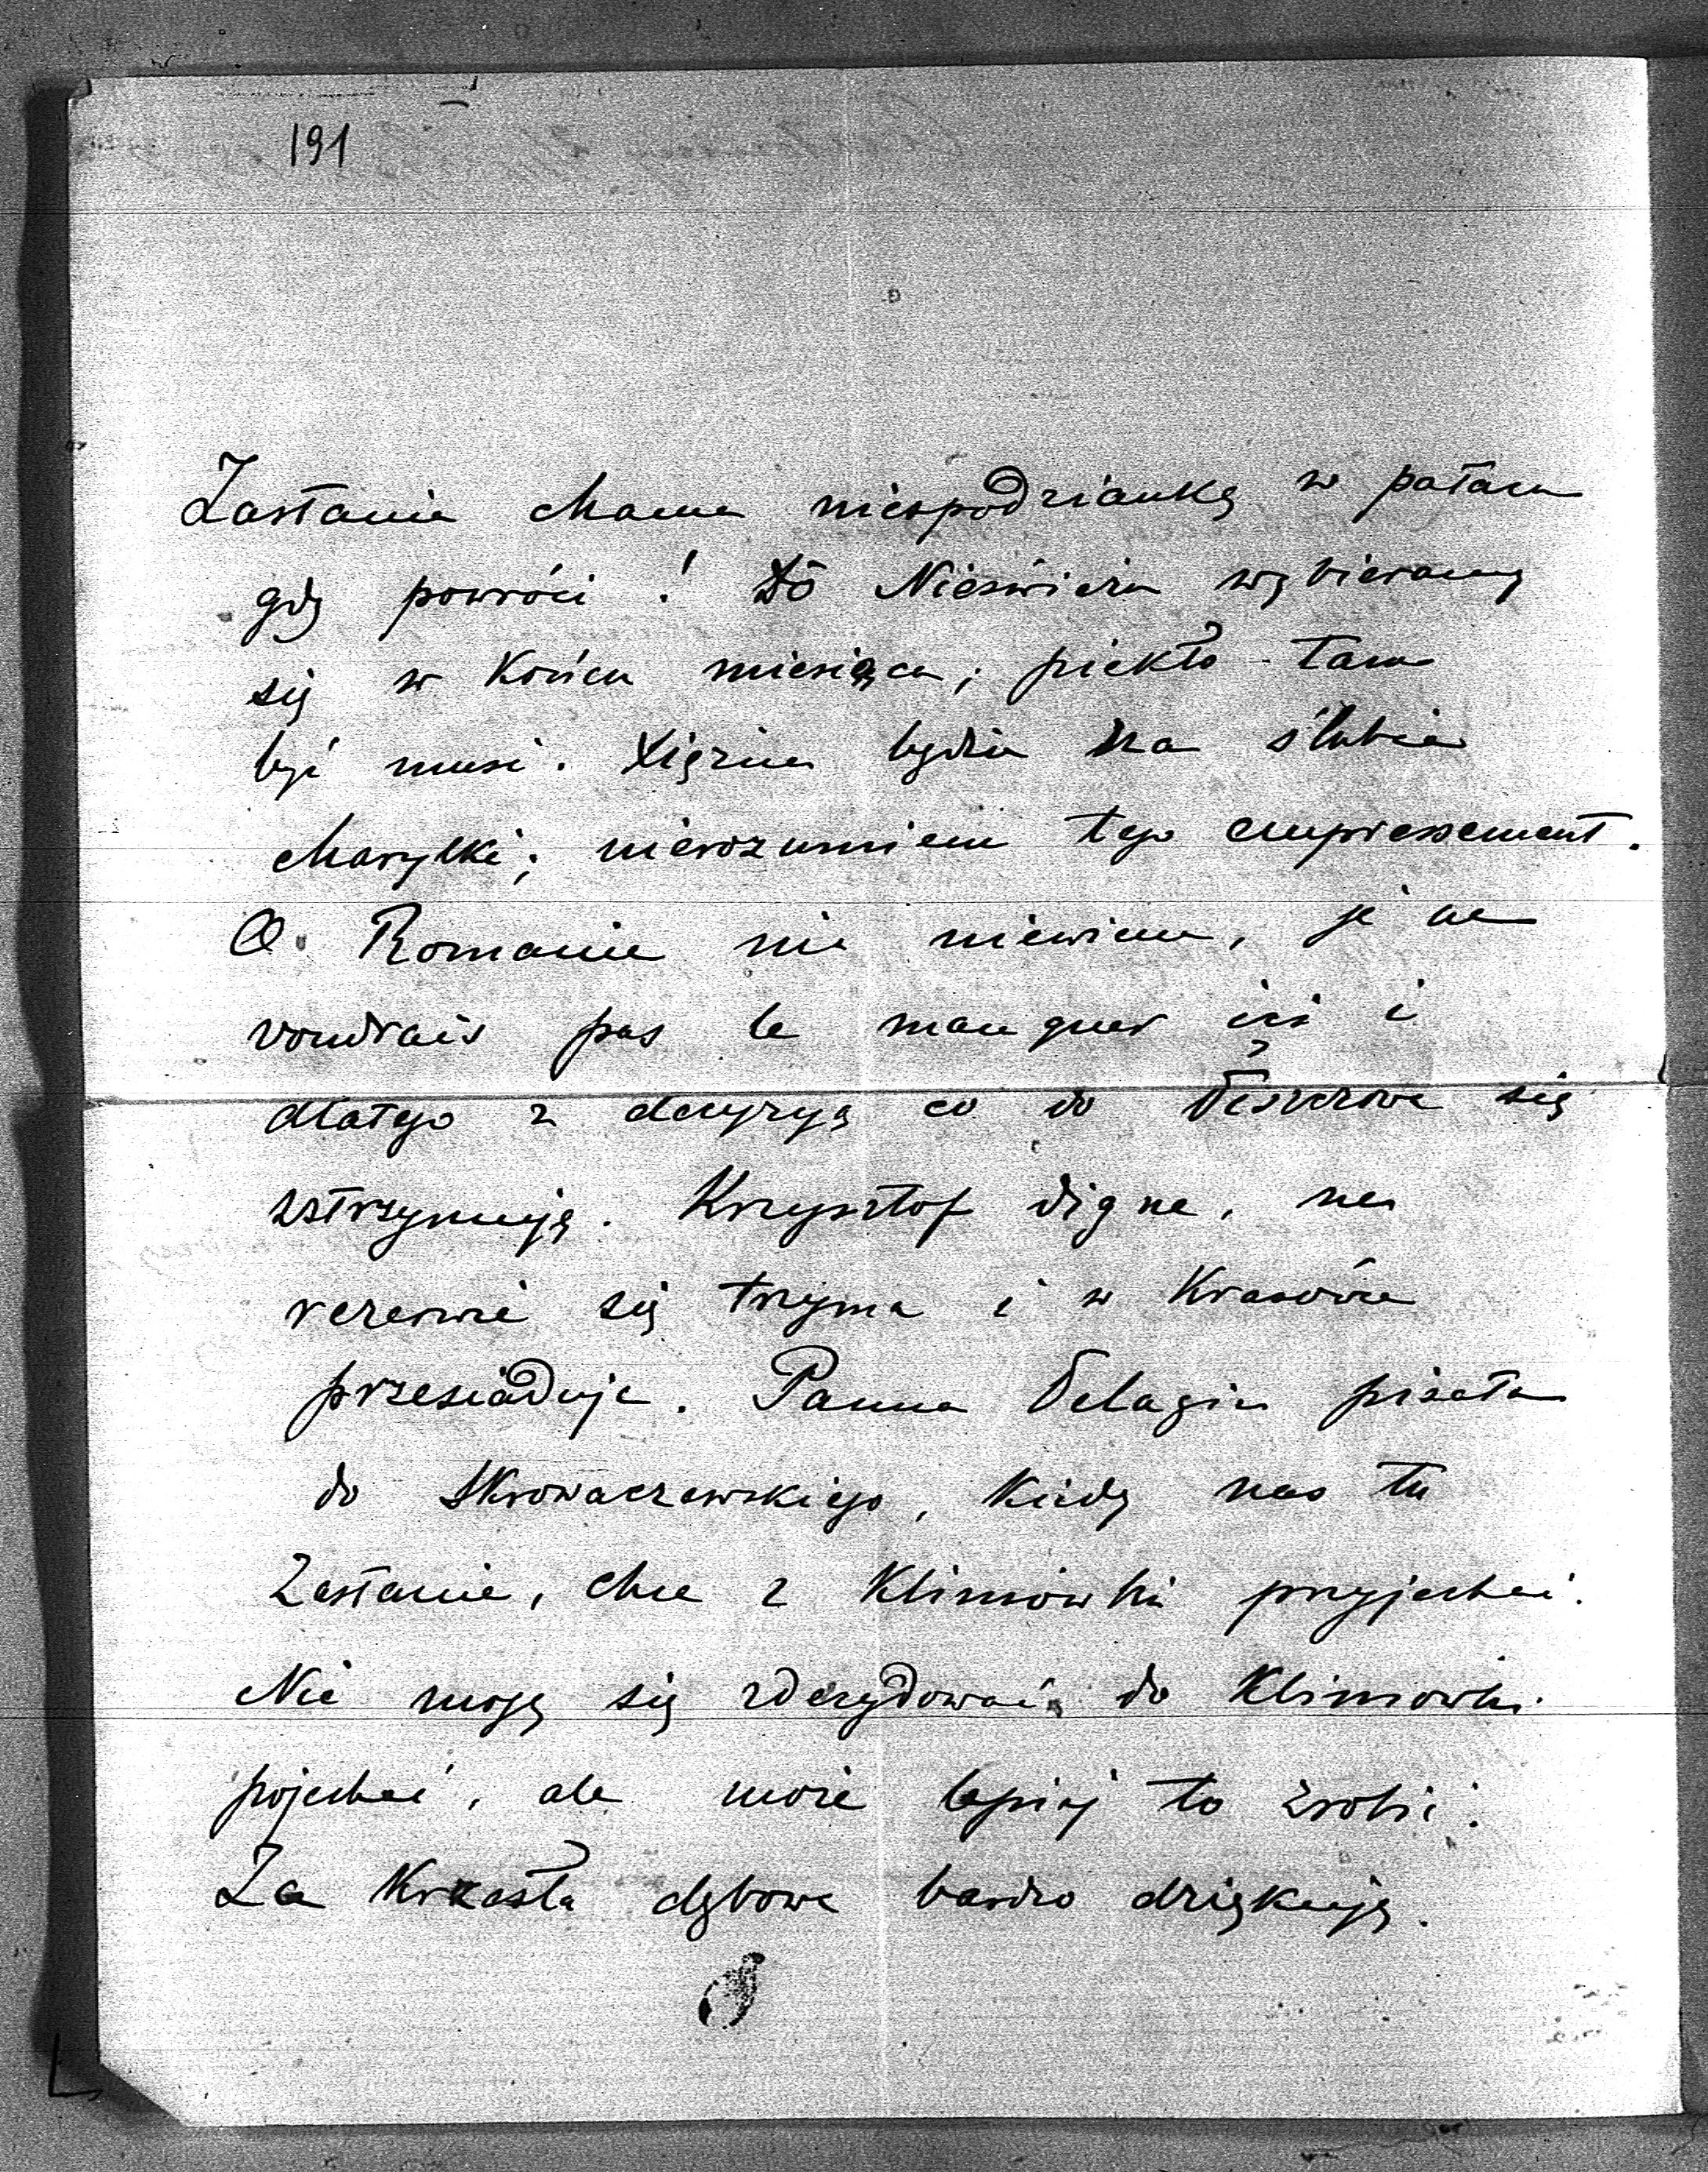 191
Zastanie Mama niespodziankę w pałacu
gdy powróci! Do Nieświeża wybieramy
się w końcu miesiąca; piekło tam
być musi. Xiężna będzie na ślubie
Marylki; nierozumiem tego empressement.
O Romanie nic niewiem, je ne
voudrais pas le manquer ici i
dlatego z decyzyą co do się
wstrzymuję. Krzysztof digne, na
rezerwie się trzyma i w
przesiaduje. Panna Pelagia pisała
do Skrowaczewskiego, kiedy nas tu
zastanie, chce z Klimówki przyjechać.
Nie mogę się zdecydować do Klimowki
pojechać, ale może lepiej to zrobić.
Za Krzasła dębowe bardzo dziękuję.